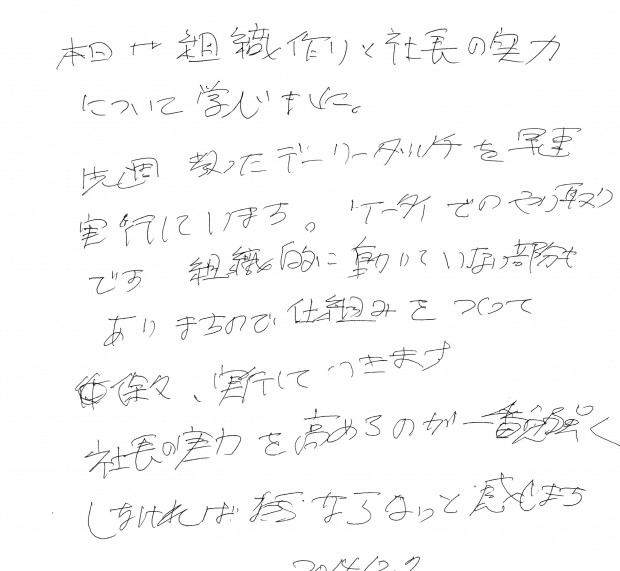 本日は組織作りと社長の実力
について学びました。
先週 教ったデーリータッチを早速
実行しています。ケータイでのやり取り
です 組織的に動いていない部分も
ありますので仕組みをつくって
徐々、実行していきます
社長の実力を高めるのが一番勉強
しなければ ならないと感じます